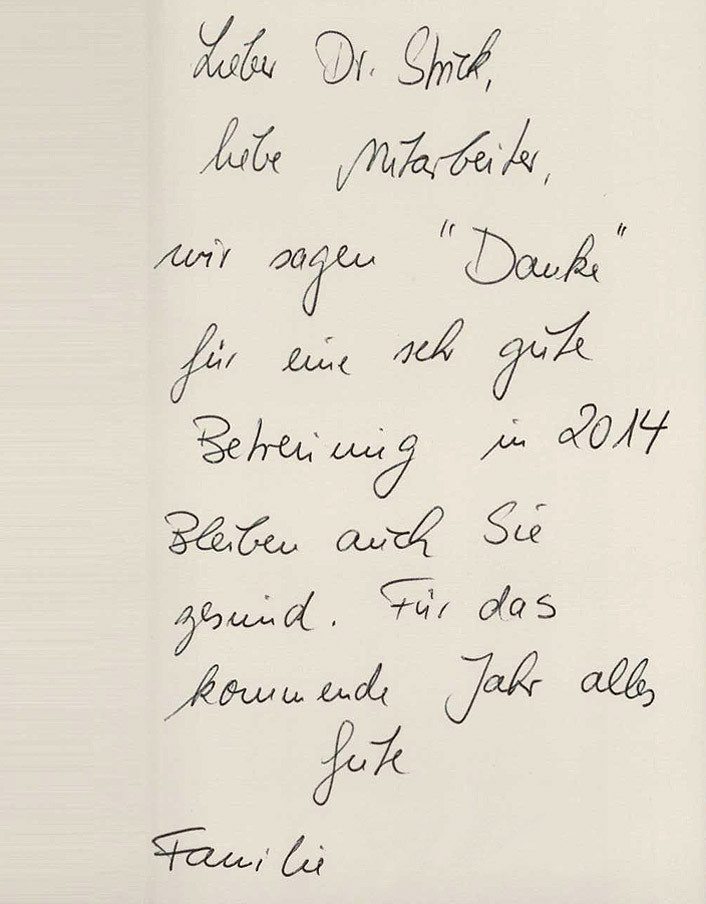 Lieber Dr. Strick,
liebe Mitarbeiter,
wir sagen "Danke"
für eine sehr gute
Betreuung in 2014
Bleiben auch Sie
gesund. Für das
kommende Jahr alles
Gute
Familie